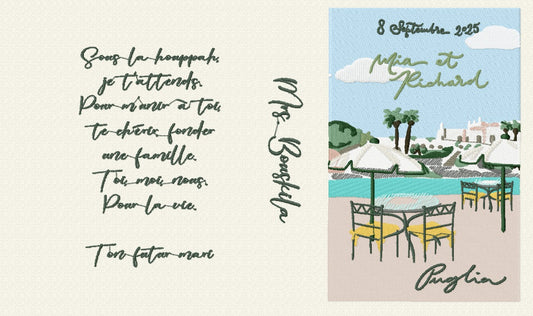 Sous la houppah,
je t'attends.
Pour m'unir à toi,
te chérir, fonder
une famille.
Toi, moi, nous.
Pour la vie.
Ton futur mari
Mrs. Bouskila
8 Septembre 2025
Mia et
Richard
Puglia